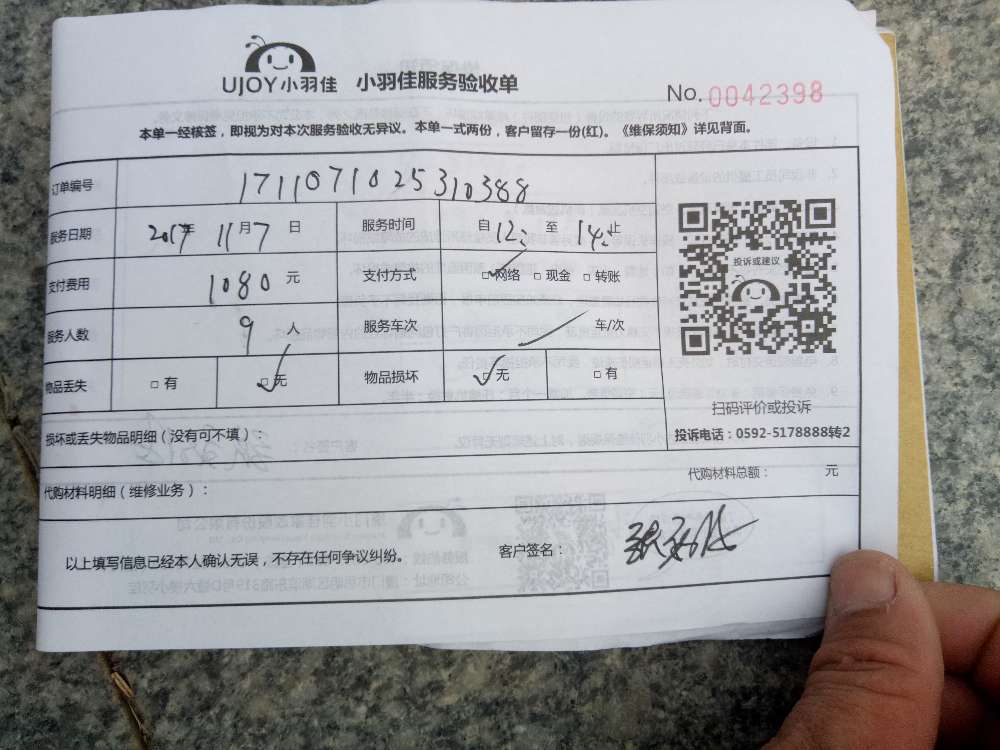 UJOY小羽佳 小羽佳服务验收单
No. 0042398
本单一经核签，即视为对本次服务验收无异议。本单一式两份，客户留存一份(红)。《维保须知》详见背面。
订单编号 1711071025310388
服务日期 2017年 11月7日 服务时间 自12: 至 14:止
支付费用 1080 元 支付方式 □网络 □现金 □转账
服务人数 9 人 服务车次 车/次
物品丢失 □有 □无 物品损坏 □无 □有
投诉或建议
扫码评价或投诉
投诉电话：0592-5178888转2
损坏或丢失物品明细（没有可不填）：
代购材料明细（维修业务）： 代购材料总额： 元
以上填写信息已经本人确认无误，不存在任何争议纠纷。 客户签名：